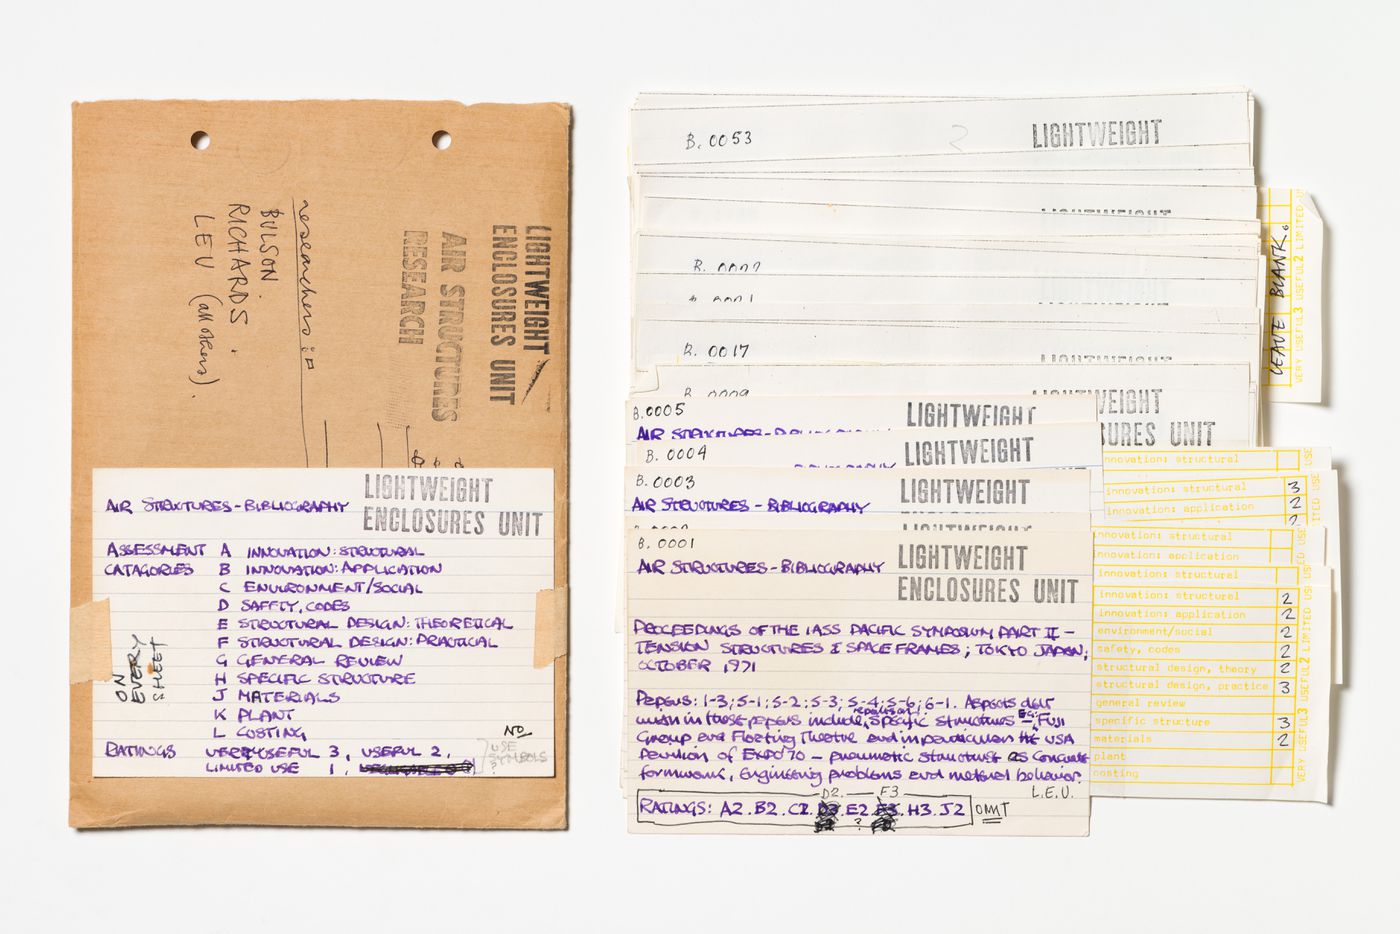 LIGHTWEIGHT
ENCLOSURES UNIT
AIR STRUCTURES
RESEARCH
researchers:-
BULSON.
RICHARDS.
LEU (all others).
AIR STRUCTURES-BIBLIOGRAPHY
LIGHTWEIGHT
ENCLOSURES UNIT
ASSESSMENT A INNOVATION: STRUCTURAL
CATAGORIES B INNOVATION: APPLICATION
C ENVIRONMENT/SOCIAL
D SAFETY, CODES
E STRUCTURAL DESIGN: THEORETICAL
F STRUCTURAL DESIGN: PRACTICAL
G GENERAL REVIEW
H SPECIFIC STRUCTURE
J MATERIALS
K PLANT
L COSTING
RATINGS VERY USEFUL 3, USEFUL 2,
LIMITED USE 1,
ON
EVERY
SHEET
NO
USE
SYMBOLS
?
B. 0053 2 LIGHTWEIGHT
LIGHTWEIGHT
LIGHTWEIGHT
B. 0017
LIGHTWEIGHT
B. 0009 LIGHTWEIGHT
SURES UNIT
LEAVE BLANK.
VERY USEFUL3 USEFUL2 LIMITED US
B.0005 LIGHTWEIGHT
AIR STRUCTURES-BIBLIOGRAPHY
B. 0004 LIGHTWEIGHT
B.0003 LIGHTWEIGHT
AIR STRUCTURES - BIBLIOGRAPHY
LIGHTWEIGHT
B. 0001 LIGHTWEIGHT
AIR STRUCTURES-BIBLIOGRAPHY ENCLOSURES UNIT
PROCEEDINGS OF THE IASS PACIFIC SYMPOSIUM PART II -
TENSION STRUCTURES & SPACE FRAMES; TOKYO JAPAN;
OCTOBER, 1971
Papers: 1-3; 5-1; 5-2; 5-3; 5-4; 5-6; 6-1. Aspects dealt
with in these papers include, specific structures Eg: Fuji
Group and Floating Theatre and in particular the USA
Pavilion of EXPO '70 - pneumatic structure as concrete
formwork, engineering problems and material behavior.
L.E.U.
D2. F3
RATINGS: A2. B2. C2. E2. H3. J2 OMIT
?
innovation: structural
innovation: structural 3
innovation: application 2
2
innovation: structural
innovation: application
innovation: structural
innovation: structural 2
innovation: application 2
environment/social 2
safety, codes 2
structural design, theory 2
structural design, practice 3
general review
specific structure 3
materials 2
plant
costing
VERY USEFUL3 USEFUL2 LIMITED USE